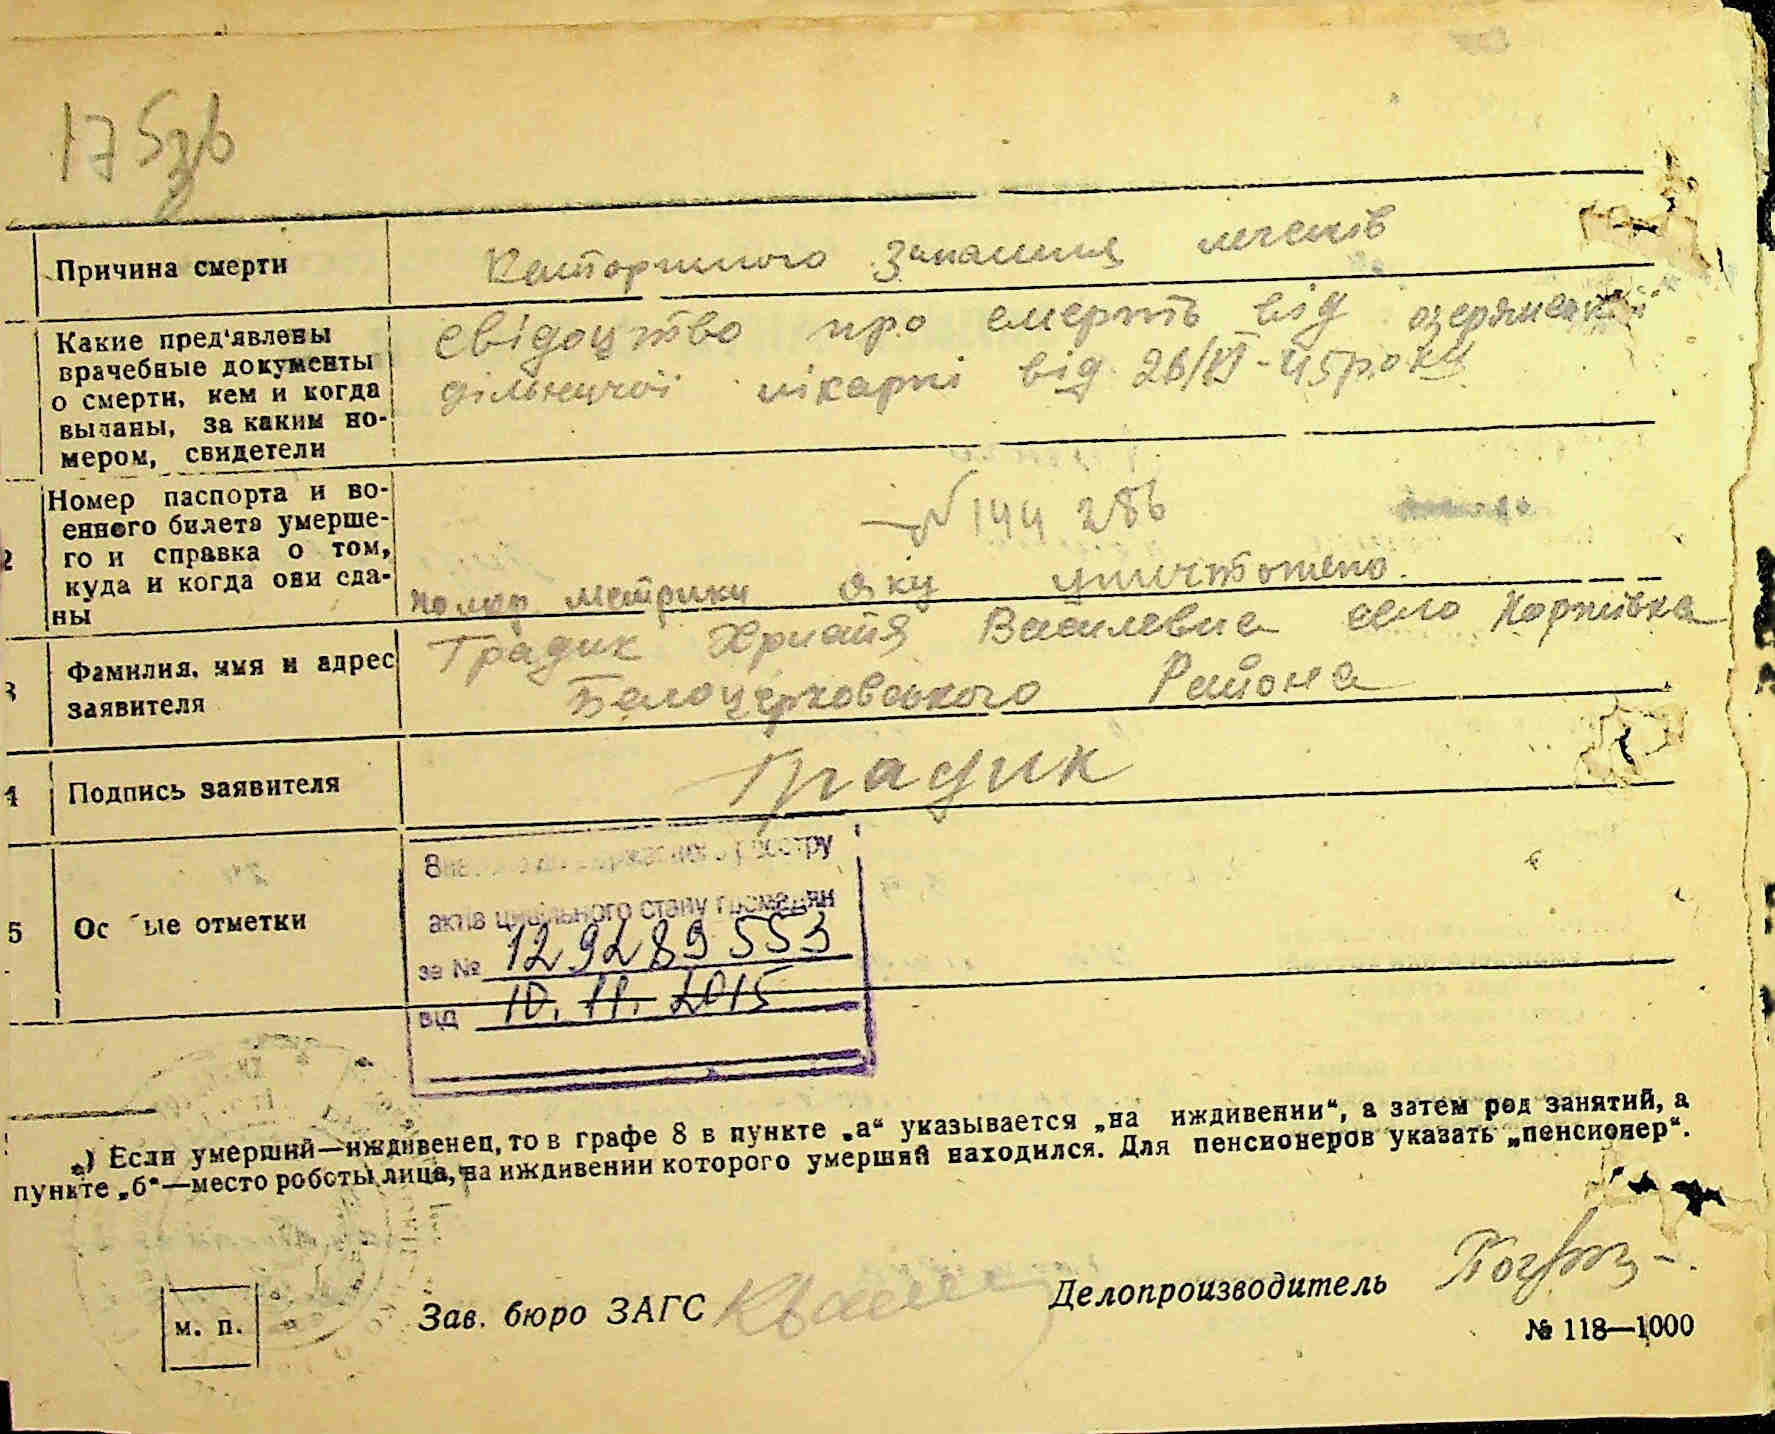 175зв
Причина смерти
Каторичного запаления легенів
Какие пред'явлены
врачебные документы
о смерти, кем и когда
выданы, за каким но-
мером, свидетели
свідоцтво про смерть від озерянської
дільничої лікарні від 26/VI-45 року
2
Номер паспорта и во-
енного билета умерше-
го и справка о том,
куда и когда они сда-
ны
№ 144 286
номер метрики яку уничтожено.
3
Фамилия, имя и адрес
заявителя
Градик Василевна село Коржівка
Белоцерковського Района
4
Подпись заявителя
Градик
5
Ос ые отметки
реєстру
актів цивільного стану громадян
за № 129289553
від 10.11.2015
*) Если умерший—иждивенец, то в графе 8 в пункте „а“ указывается „на иждивении“, а затем род занятий, а
пункте „б“—место роботы лица, на иждивении которого умерший находился. Для пенсионеров указать „пенсионер“.
м. п.
Зав. бюро ЗАГС
Делопроизводитель
№ 118—1000